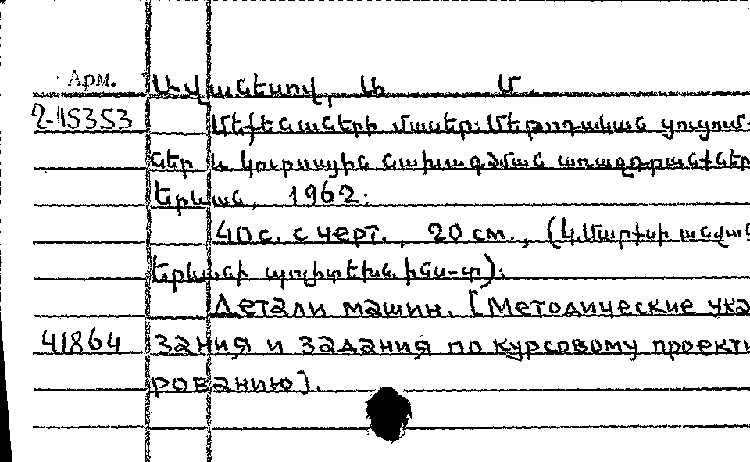 Арм.
Ավանեսով, Ա. Մ.
2-15353 Մեքենաների մասեր: Մեթոդական ցուցում-
ներ և կուրսային նախագծման առաջադրանքներ
Երևան, 1962:
40 с. с черт., 20 см., (Կ. Մարքսի անվան
Երևանի պոլիտեխն. ինս-տ):
Детали машин. [Методические ука
41864 зания и задания по курсовому проекти
рованию].